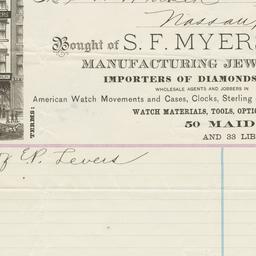 Nassau,
Bought of S. F. MYERS
MANUFACTURING JEW
IMPORTERS OF DIAMONDS
WHOLESALE AGENTS AND JOBBERS IN
American Watch Movements and Cases, Clocks, Sterling
WATCH MATERIALS, TOOLS, OPTIC
50 MAID
AND 33 LIB
TERMS:
of E.P. Levers